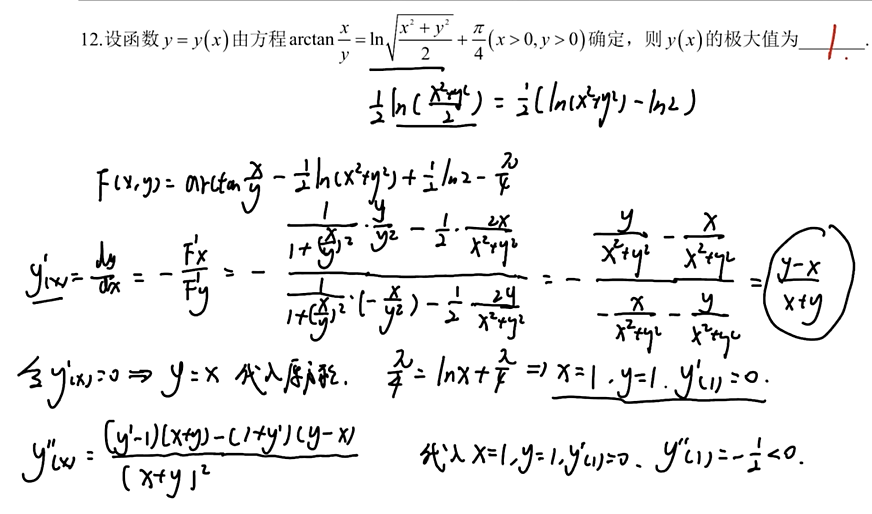 12.设函数 y = y(x) 由方程 arctan x/y = ln √((x² + y²)/2) + π/4 (x > 0, y > 0) 确定，则 y(x) 的极大值为 1.
1/2 ln(x²+y²/2) = 1/2 (ln(x²+y²) - ln2)
F(x,y) = arctan x/y - 1/2 ln(x²+y²) + 1/2 ln2 - π/4
y'(x) = dy/dx = - F'x/F'y = - (1/(1+(x/y)²) · y/y² - 1/2 · 2x/(x²+y²)) / (1/(1+(x/y)²) · (-x/y²) - 1/2 · 2y/(x²+y²)) = - (y/(x²+y²) - x/(x²+y²)) / (-x/(x²+y²) - y/(x²+y²)) = (y-x)/(x+y)
令 y'(x)=0 ⇒ y=x 代入原方程. π/4 = lnx + π/4 ⇒ x=1, y=1. y'(1)=0.
y''(x) = ((y'-1)(x+y) - (1+y')(y-x)) / (x+y)² 代入 x=1, y=1, y'(1)=0. y''(1) = -1/2 < 0.